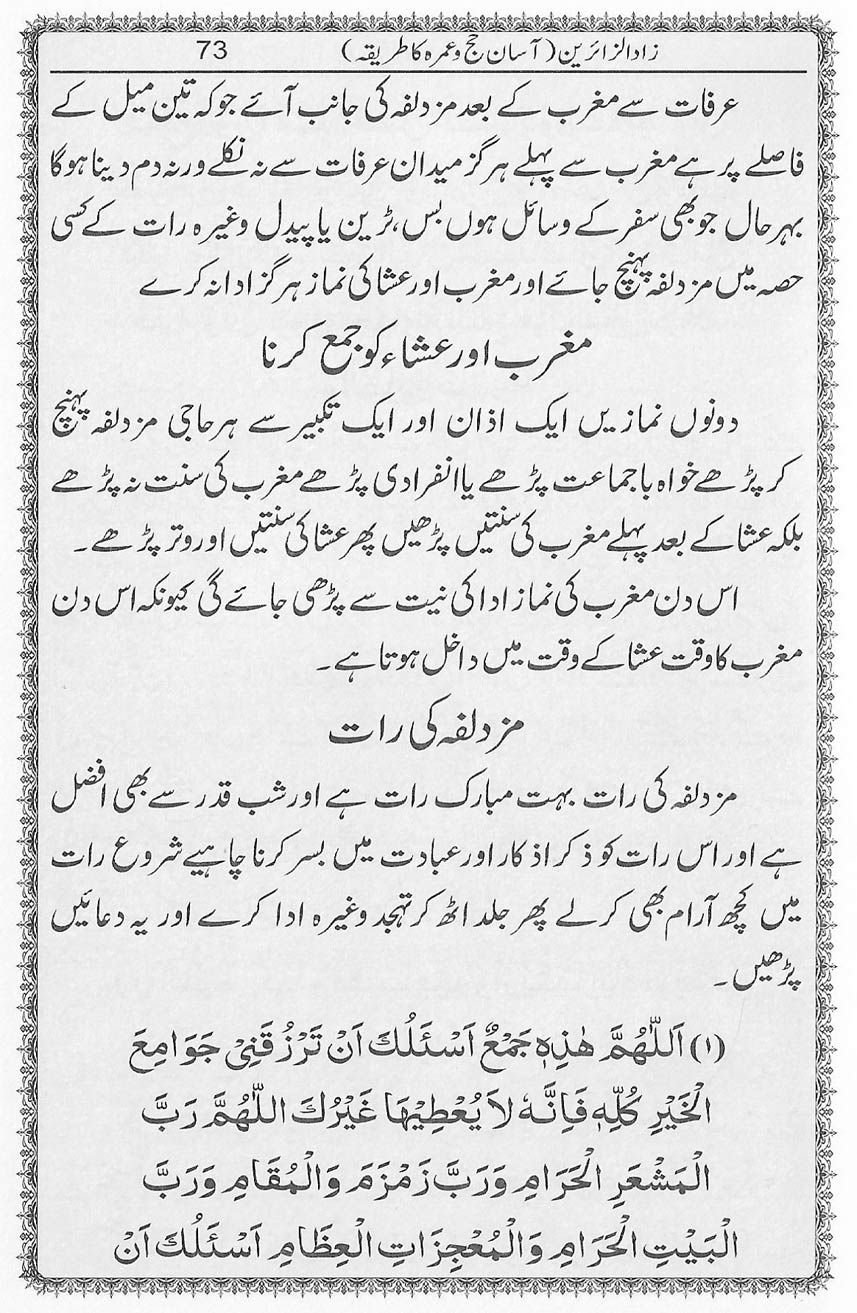 زاد الزائرین (آسان حج و عمرہ کا طریقہ) 73
عرفات سے مغرب کے بعد مزدلفہ کی جانب آئے جو کہ تین میل کے
فاصلے پر ہے مغرب سے پہلے ہرگز میدان عرفات سے نہ نکلے ورنہ دم دینا ہوگا
بہر حال جو بھی سفر کے وسائل ہوں بس، ٹرین یا پیدل وغیرہ رات کے کسی
حصہ میں مزدلفہ پہنچ جائے اور مغرب اور عشا کی نماز ہرگز ادا نہ کرے
مغرب اور عشاء کو جمع کرنا
دونوں نمازیں ایک اذان اور ایک تکبیر سے ہر حاجی مزدلفہ پہنچ
کر پڑھے خواہ با جماعت پڑھے یا انفرادی پڑھے مغرب کی سنت نہ پڑھے
بلکہ عشا کے بعد پہلے مغرب کی سنتیں پڑھیں پھر عشا کی سنتیں اور وتر پڑھے۔
اس دن مغرب کی نماز ادا کی نیت سے پڑھی جائے گی کیونکہ اس دن
مغرب کا وقت عشا کے وقت میں داخل ہوتا ہے۔
مزدلفہ کی رات
مزدلفہ کی رات بہت مبارک رات ہے اور شب قدر سے بھی افضل
ہے اور اس رات کو ذکر اذکار اور عبادت میں بسر کرنا چاہیے شروع رات
میں کچھ آرام بھی کر لے پھر جلد اٹھ کر تہجد وغیرہ ادا کرے اور یہ دعائیں
پڑھیں۔
(۱) اَللّٰهُمَّ هٰذِهٖ جَمْعٌ اَسْئَلُكَ اَنْ تَرْزُقَنِیْ جَوَامِعَ
الْخَیْرِ كُلِّهٖ فَاِنَّهٗ لَا یُعْطِیْهَا غَیْرُكَ اللّٰهُمَّ رَبَّ
الْمَشْعَرِ الْحَرَامِ وَرَبَّ زَمْزَمَ وَالْمُقَامِ وَرَبَّ
الْبَیْتِ الْحَرَامِ وَالْمُعْجِزَاتِ الْعِظَامِ اَسْئَلُكَ اَنْ